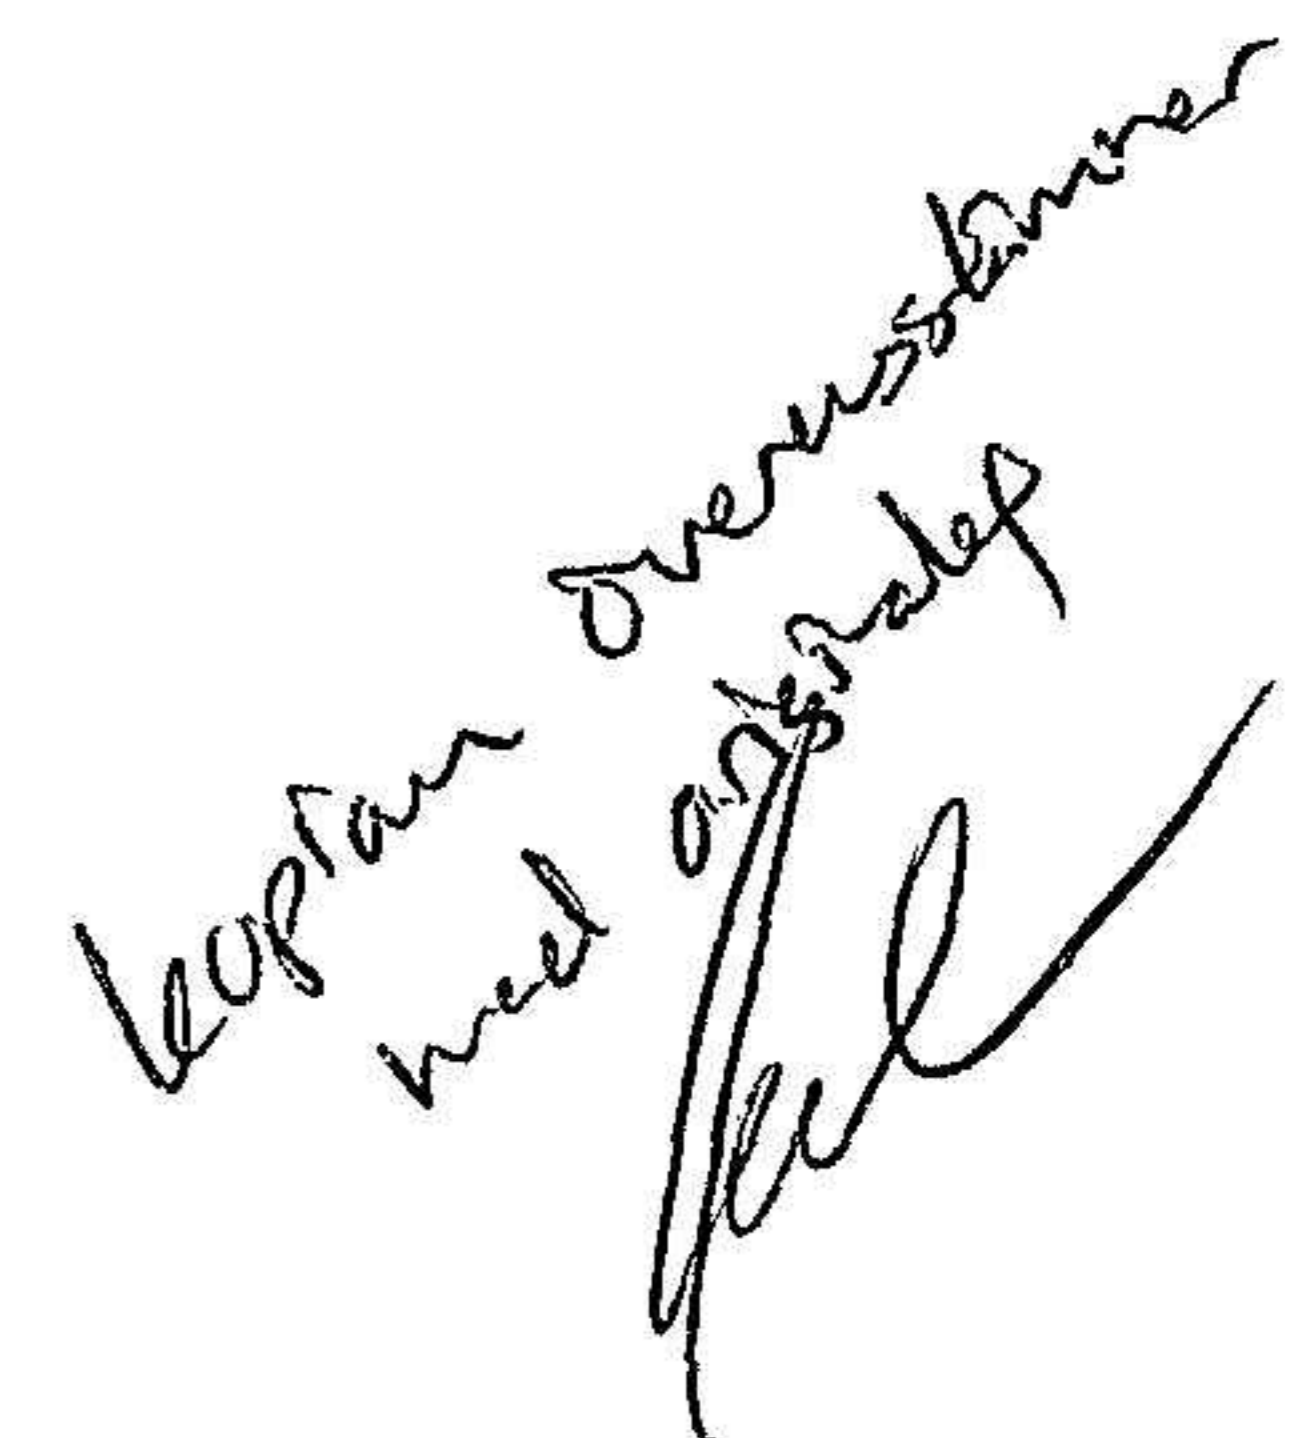 kopian överensstämmer
med originalet